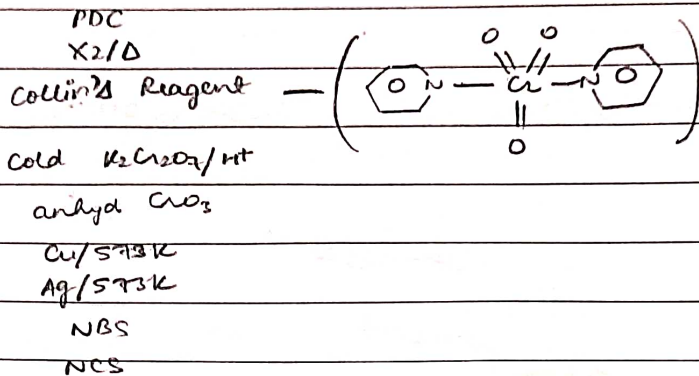 PDC
X2/Δ
Collin's Reagent — ( N — Cr — N O O O O O )
Cold K2Cr2O7/H+
anhyd CrO3
Cu/573K
Ag/573K
NBS
NCS